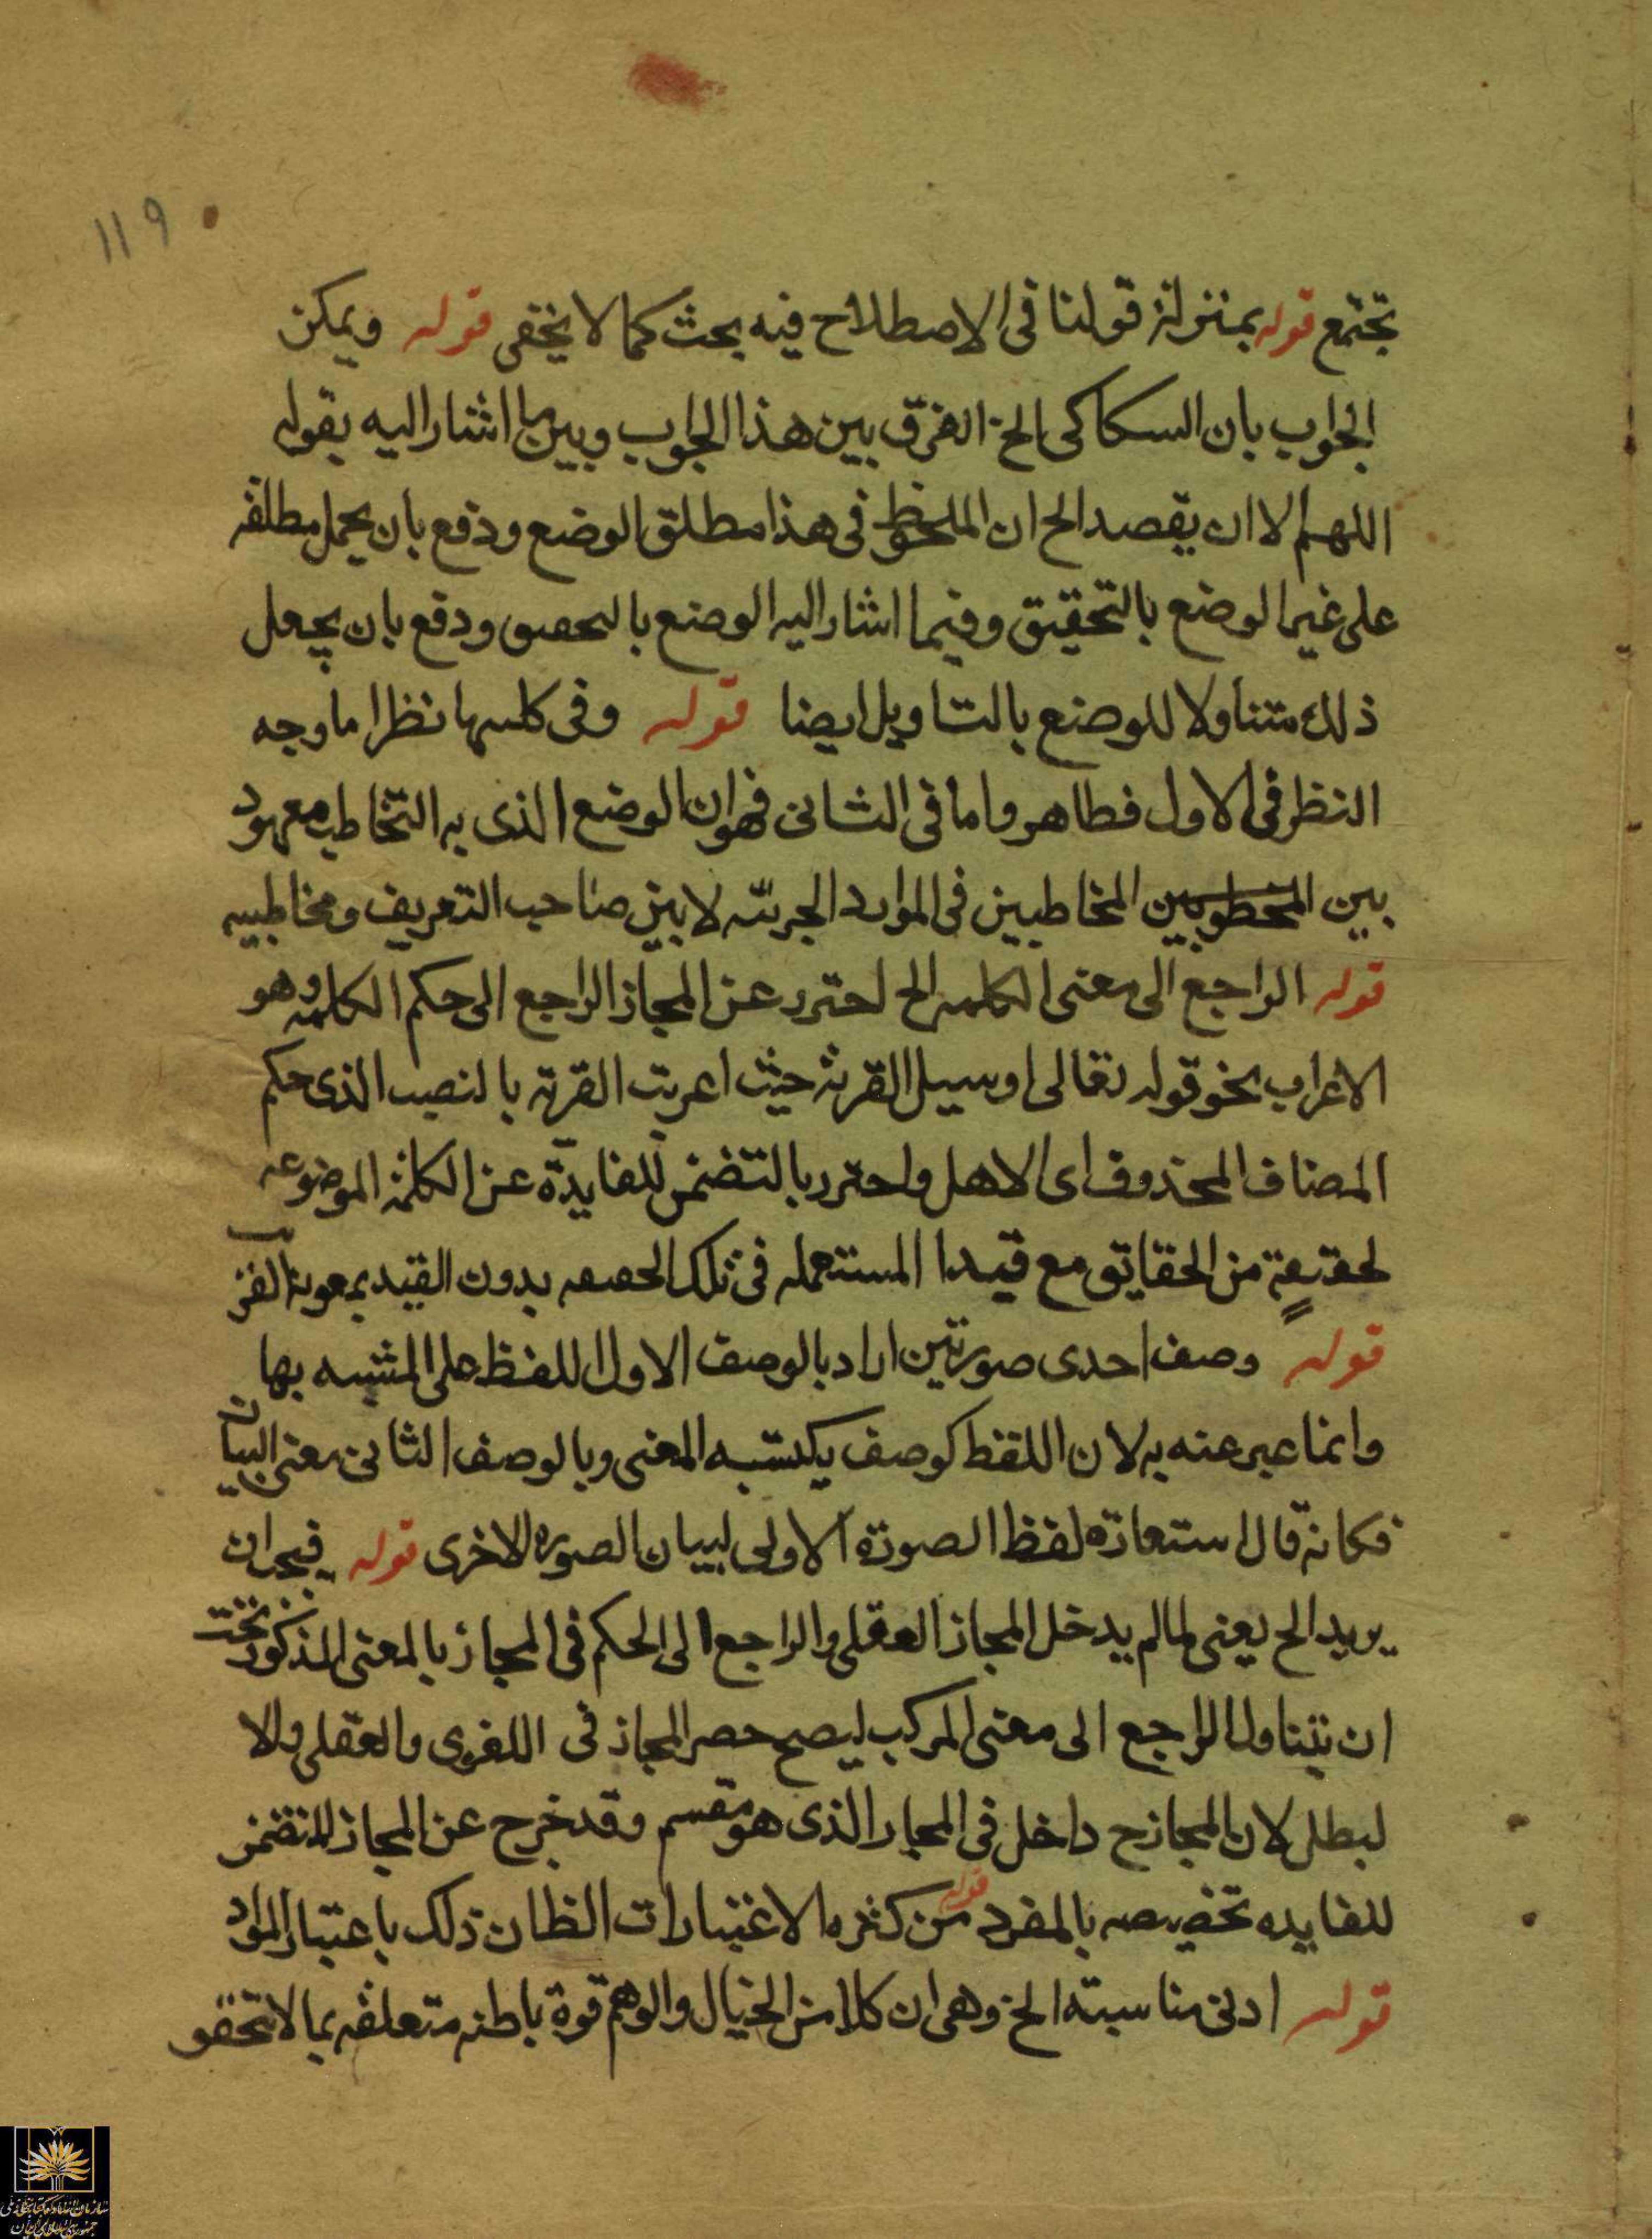 ١١٩
تجتمع قوله بمنزلة قولنا فى الاصطلاح فيه بحث كما لا يخفى قوله ويمكن
الجواب بان السكاكى الخ الفرق بين هذا الجواب وبين ما اشار اليه بقوله
اللهم الا ان يقصد الح ان الملحوظ فى هذا مطلق الوضع ودفع بان يحمل مطلقه
على غير الوضع بالتحقيق وفيما اشار اليه الوضع بالتحقيق ودفع بان يجعل
ذلك متناولا للوضع بالتاويل ايضا قوله وفى كليهما نظر اما وجه
النظر فى الاول فظاهر واما فى الثانى فهو ان الوضع الذى به التخاطب معهود
بين المخاطبين فى الموارد الجزئيه لا بين صاحب التعريف ومخاطبيه
قوله الراجع الى معنى الكلمه الح احترز عن المجاز الراجع الى حكم الكلمه وهو
الاعراب نحو قوله تعالى اوسيل القرية حيث اعربت القرية بالنصب الذى حكم
المضاف المحذوف اى الاهل واحترز بالتضمن للفايدة عن الكلمة الموضوعه
لحقيقة من الحقايق مع قيد المستعمله فى تلك الحقيقه بدون القيد بمعونة القرينة
قوله وصف احدى صورتين اراد بالوصف الاول اللفظ على المشبه بها
وانما عبر عنه به لان اللفظ كوصف يكتسبه المعنى وبالوصف الثانى معنى البيان
فكانه قال استعارة لفظ الصورة الاولى لبيان الصوره الاخرى قوله فيجب ان
يريد الح يعنى لما لم يدخل المجاز العقلى والراجع الى الحكم فى المجاز بالمعنى المذكور يجب
ان يتناول الراجع الى معنى المركب ليصح حصر المجاز فى اللغوى والعقلى والا
لبطل لان المجاز ح داخل فى المجاز الذى هو مقسم وقد خرج عن المجاز المتضمن
للفايده تخصيصه بالمفرد قوله من كثره الاعتبارات الظان ذلك باعتبار المواد
قوله ادنى مناسبته الخ وهى ان كلا من الخيال والوهم قوة باطنه متعلقه بما لا تحقق